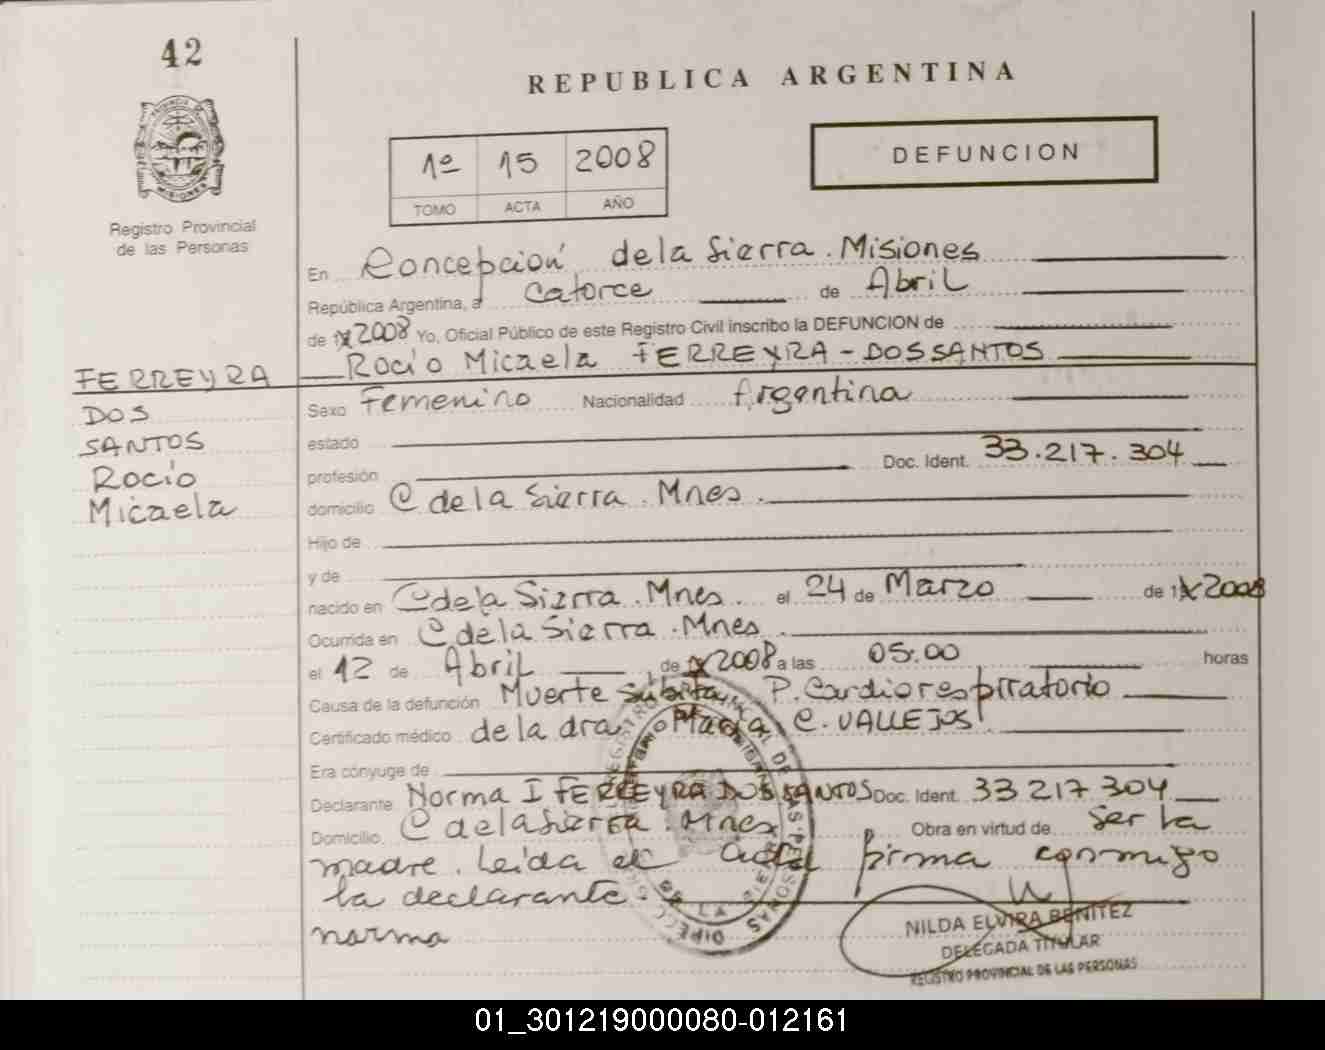 42
REPUBLICA ARGENTINA
1º 15 2008
TOMO ACTA AÑO
DEFUNCION
PROVINCIA DE MISIONES
Registro Provincial
de las Personas
En Concepción de la Sierra. Misiones
República Argentina, a catorce de Abril
de 2008 Yo, Oficial Público de este Registro Civil inscribo la DEFUNCION de
Rocío Micaela FERREYRA - DOS SANTOS
FERREYRA
DOS
SANTOS
Rocío
Micaela
Sexo Femenino Nacionalidad Argentina
estado
profesión Doc. Ident. 33.217.304
domicilio C de la Sierra. Mnes.
Hijo de
y de
nacido en C de la Sierra. Mnes. el 24 de Marzo de 1 2008
Ocurrida en C de la Sierra. Mnes.
el 12 de Abril de 2008 a las 05:00 horas
Causa de la defunción Muerte Súbita, P. Cardiorespiratorio
Certificado médico de la dra María C. VALLEJOS
Era cónyuge de
Declarante Norma I FERREYRA DOS SANTOS Doc. Ident. 33 217 304
Domicilio C de la Sierra. Mnes Obra en virtud de ser la
madre. Leída el acta firma conmigo
la declarante.
norma
NILDA ELVIRA BENITEZ
DELEGADA TITULAR
REGISTRO PROVINCIAL DE LAS PERSONAS
01_301219000080-012161